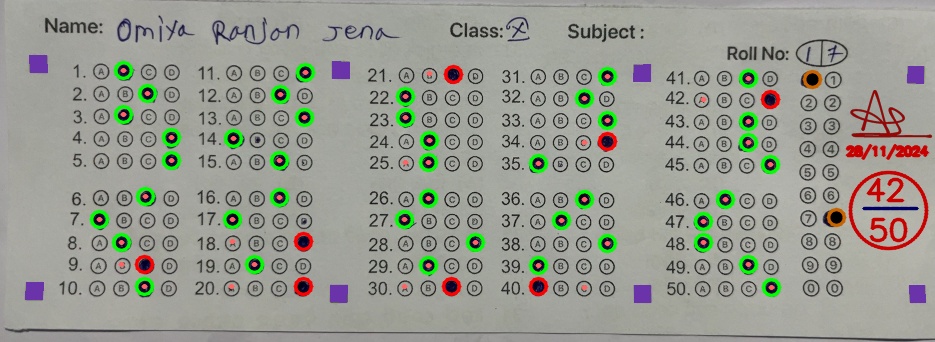 Name: Omiya Ranjan Jena Class: X Subject :
Roll No: 1 7
1. A C D
2. A B D
3. A C D
4. A B C
5. A B C
6. A B D
7. B C D
8. A C D
9. A B D
10. A B D
11. A B C
12. A B D
13. A B C
14. C D
15. A B D
16. A B D
17. B C
18. A B C
19. A C D
20. A B C
21. A B D
22. B C D
23. B C D
24. A C D
25. A C D
26. A C D
27. B C D
28. A B C
29. A C D
30. A B D
31. A B C
32. A B D
33. A B C
34. A B C
35. B C D
36. A B D
37. A C D
38. A B C
39. B C D
40. B C D
41. A B D
42. A B C
43. A B D
44. A B D
45. A B C
46. A C D
47. B C D
48. B C D
49. A B D
50. A B C
1
2 2
3 3
4 4
5 5
6 6
7
8 8
9 9
0 0
28/11/2024
42
50